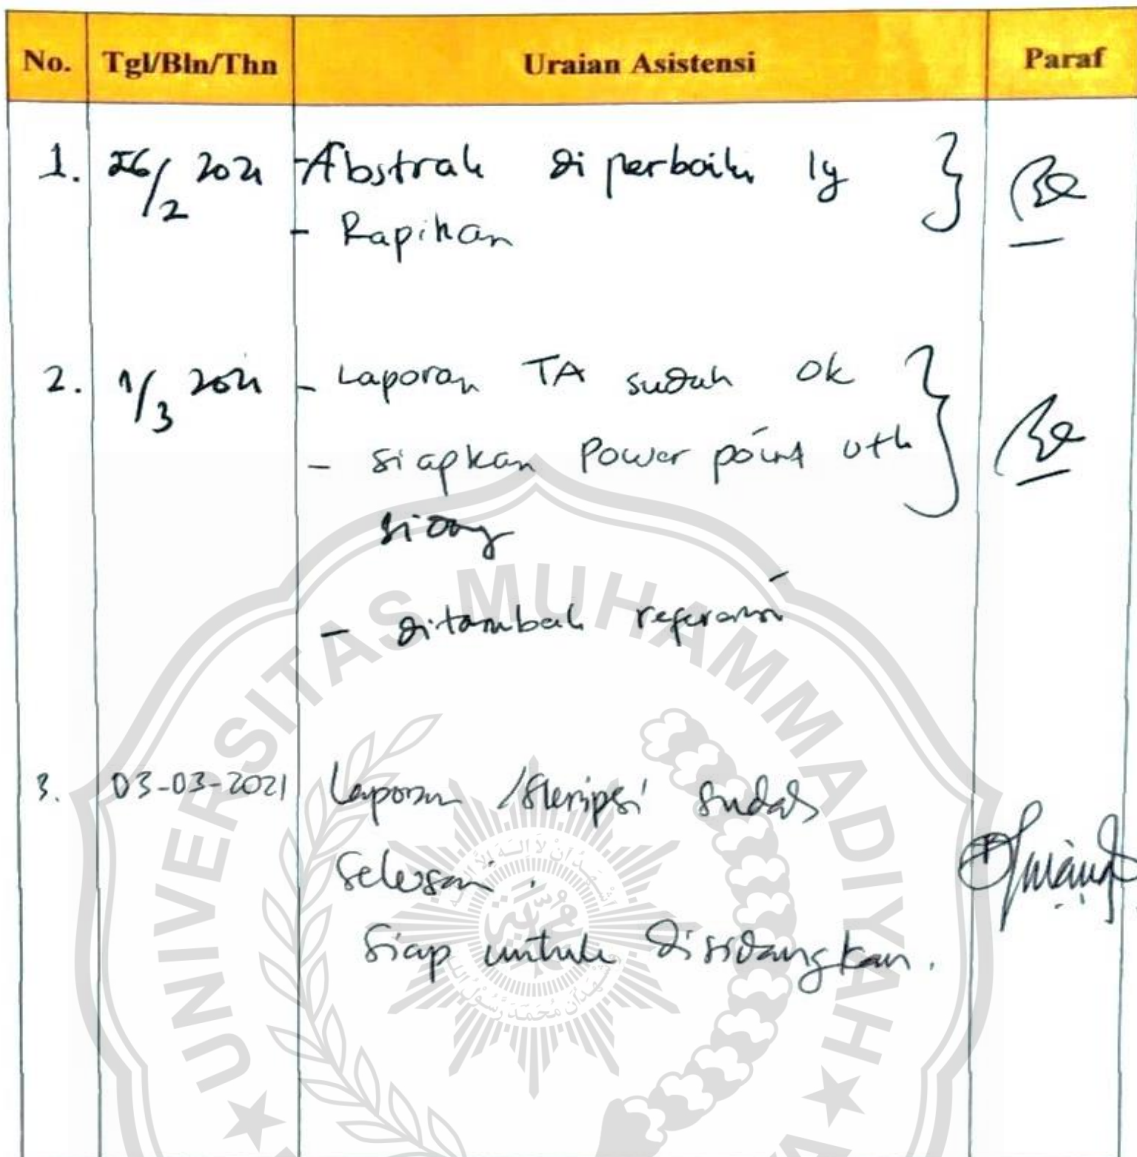 No. Tgl/Bln/Thn Uraian Asistensi Paraf
1. 26/2 2021 - Abstrak diperbaiki lg
- Rapihan
2. 1/3 2021 - Laporan TA sudah ok
- siapkan Power point utk
sidang
- ditambah referensi
3. 03-03-2021 Laporan /Skripsi sudah
selesai.
Siap untuk disidangkan.
UNIVERSITAS MUHAMMADIYAH